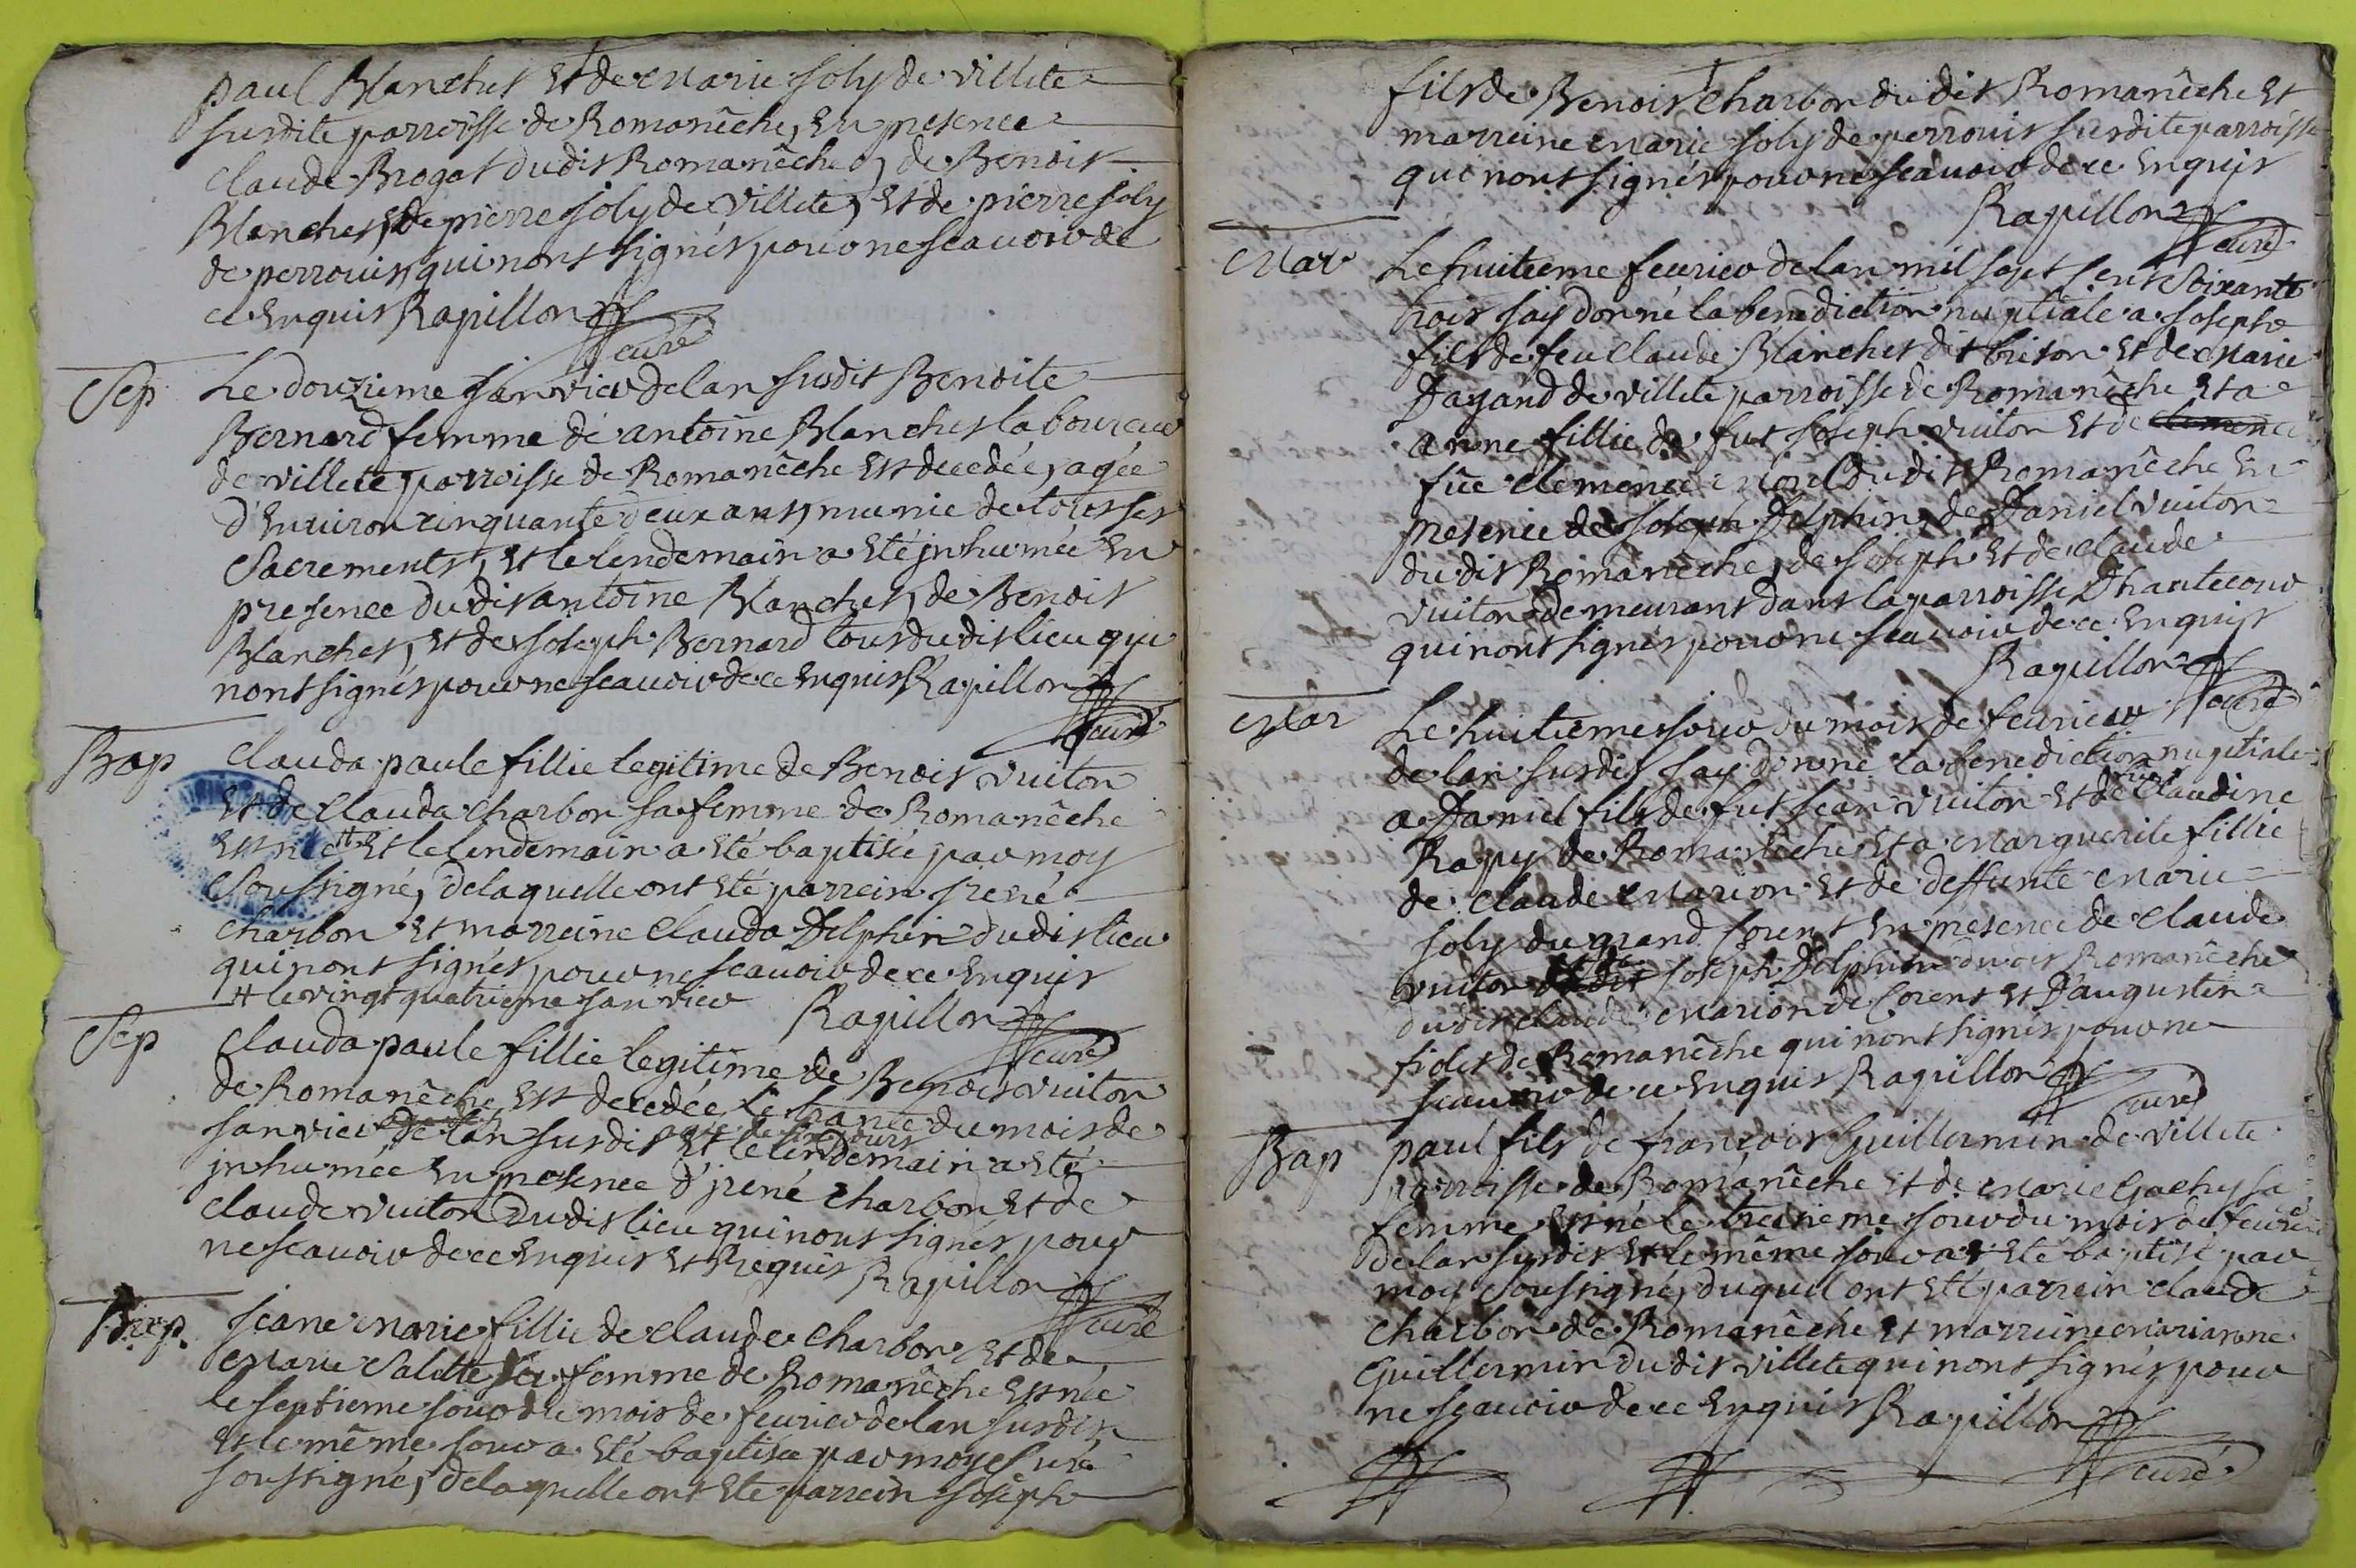 paul Blanchet Et de Marie Joly de villete
susdite parroisse de Romanêche, En presence
Claude Brogat dudit Romanêche, de Benoit
Blanchet, de pierre Joly de villete, Et de pierre Joly
de perrouit, qui nont signés pour ne scauoir de
ce Enquis Rapillon
curé
Sep
Le douzieme Janvier de lan susdit Benoite
Bernard femme de antoine Blanchet laboureur
de villete parroisse de Romanêche Est decedée, agée
d'Enuiron cinquante deux ans, munie de tous ses
Sacrements, Et le lendemain a Eté jnhumée En
presence dudit antoine Blanchet, de Benoit
Blanchet, Et de Joseph Bernard tous dudit lieu qui
nont signés pour ne scauoir de ce Enquis Rapillon
curé
Bap
Clauda paule fillie legitime de Benoit vuiton
Et de Clauda Charbon sa femme de Romanêche
Est née # Et le lendemain a Eté baptisée par moy
Soussigné, de laquelle ont Eté parrein jrené
Charbon Et marreine Clauda Delphin dudit lieu
qui nont signés pour ne scauoir de ce Enquis
# le vingt quatrieme Janvier Rapillon
curé
Sep
Clauda paule fillie legitime de Benoit vuiton
de Romanêche Est decedée le trante du mois de
Janvier de lan susdit agée de six jours Et le lendemain a Eté
jnhumée En presence d'jrené Charbon Et de
Claude vuiton dudit lieu qui nont signés pour
ne scauoir de ce Enquis Et Requis Rapillon
curé
Bap.
Jeane marie fillie de Claude Charbon Et de
Marie Salette sa femme de Romanêche Est née
le septieme jour du mois de feurier de lan susdit
Et le même jour a Eté baptisée par moy Curé
soussigné, de laquelle ont Eté parrein Joseph
fils de Benoit Charbon dudit Romanêche Et
marreine marie Joly de perrouit susdite parroisse
qui nont signés pour ne scauoir de ce Enquis
Rapillon
curé
Mar
Le huitieme feurier de lan mil sept sent soixante
trois jay donné la benediction nuptiale a Joseph
fils de feu Claude Blanchet dit briton Et de Marie
Dagand de villete parroisse de Romanêche Et a
anne fillie de fut Joseph vuiton Et de
füe Clemence dudit Romanêche En
presence de Joseph Delphin, de Daniel vuiton
dudit Romanêche, de Joseph Et de Claude
vuiton demeurant dans la parroisse Dhautecour
qui nont signés pour ne scauoir de ce Enquis
Rapillon
curé
Mar
Le huitieme jour du mois de feurier
de lan susdit jay donné la benediction nuptiale
a Daniel fils de fut Jean vuiton Et de Claudine
Rapy de Romanêche Et a Marguerite fillie
de Claude Marion Et de deffunte Marie
Joly du grand Corent En presence de Claude
vuiton Joseph Delphin dudit Romanêche
dudit Claude Marion de Corent Et D'augustin
fidet de Romanêche qui nont signés pour ne
scauoir de ce Enquis Rapillon
curé
Bap
paul fils de françois Guillermin de villete
parroisse de Romanêche Et de Marie Gachy sa
femme Est né le treisieme jour du mois de feurier
de lan susdit Et le même jour a Eté baptisé par
moy Soussigné, duquel ont Eté parrein Claude
Charbon de Romanêche Et marreine marianne
Guillermin dudit villete qui nont signés pour
ne scauoir de ce Enquis Rapillon
curé